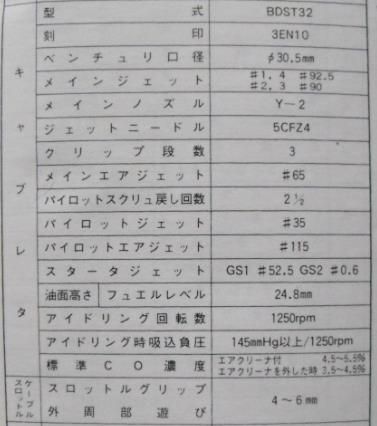 キャブレタ
型式 BDST32
刻印 3EN10
ベンチュリ口径 φ30.5mm
メインジェット #1, 4 #92.5
#2, 3 #90
メインノズル Y-2
ジェットニードル 5CFZ4
クリップ段数 3
メインエアジェット #65
パイロットスクリュ戻し回数 2 1/2
パイロットジェット #35
パイロットエアジェット #115
スタータジェット GS1 #52.5 GS2 #0.6
油面高さ フュエルレベル 24.8mm
アイドリング回転数 1250rpm
アイドリング時吸込負圧 145mmHg以上/1250rpm
標準CO濃度 エアクリーナ付 4.5~5.5%
エアクリーナを外した時 3.5~4.5%
スロットルケーブル
スロットルグリップ
外周部遊び 4~6mm